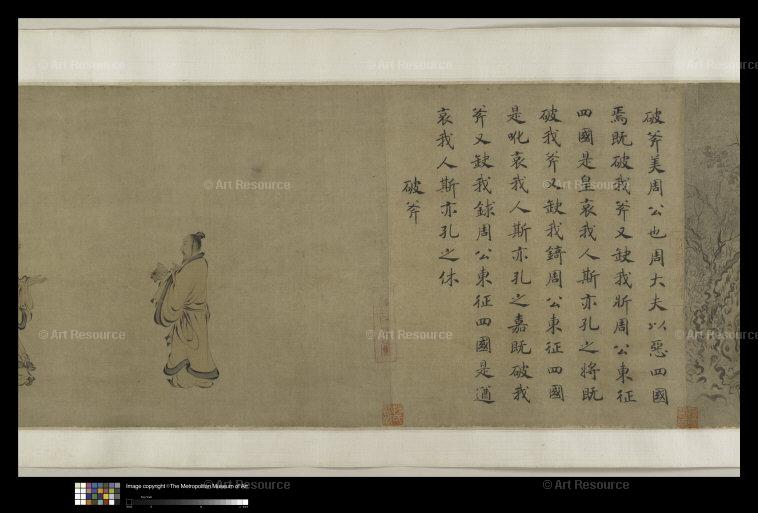 破斧美周公也周大夫以惡四國
焉既破我斧又缺我斨周公東征
四國是皇哀我人斯亦孔之將既
破我斧又缺我錡周公東征四國
是吪哀我人斯亦孔之嘉既破我
斧又缺我銶周公東征四國是遒
哀我人斯亦孔之休
破斧
© Art Resource
© Art Resource
© Art Resource
© Art Resource
© Art Resource
© Art Resource
© Art Resource
© Art Resource
© Art Resource
Image copyright ©The Metropolitan Museum of Art.
© Art Resource
© Art Resource